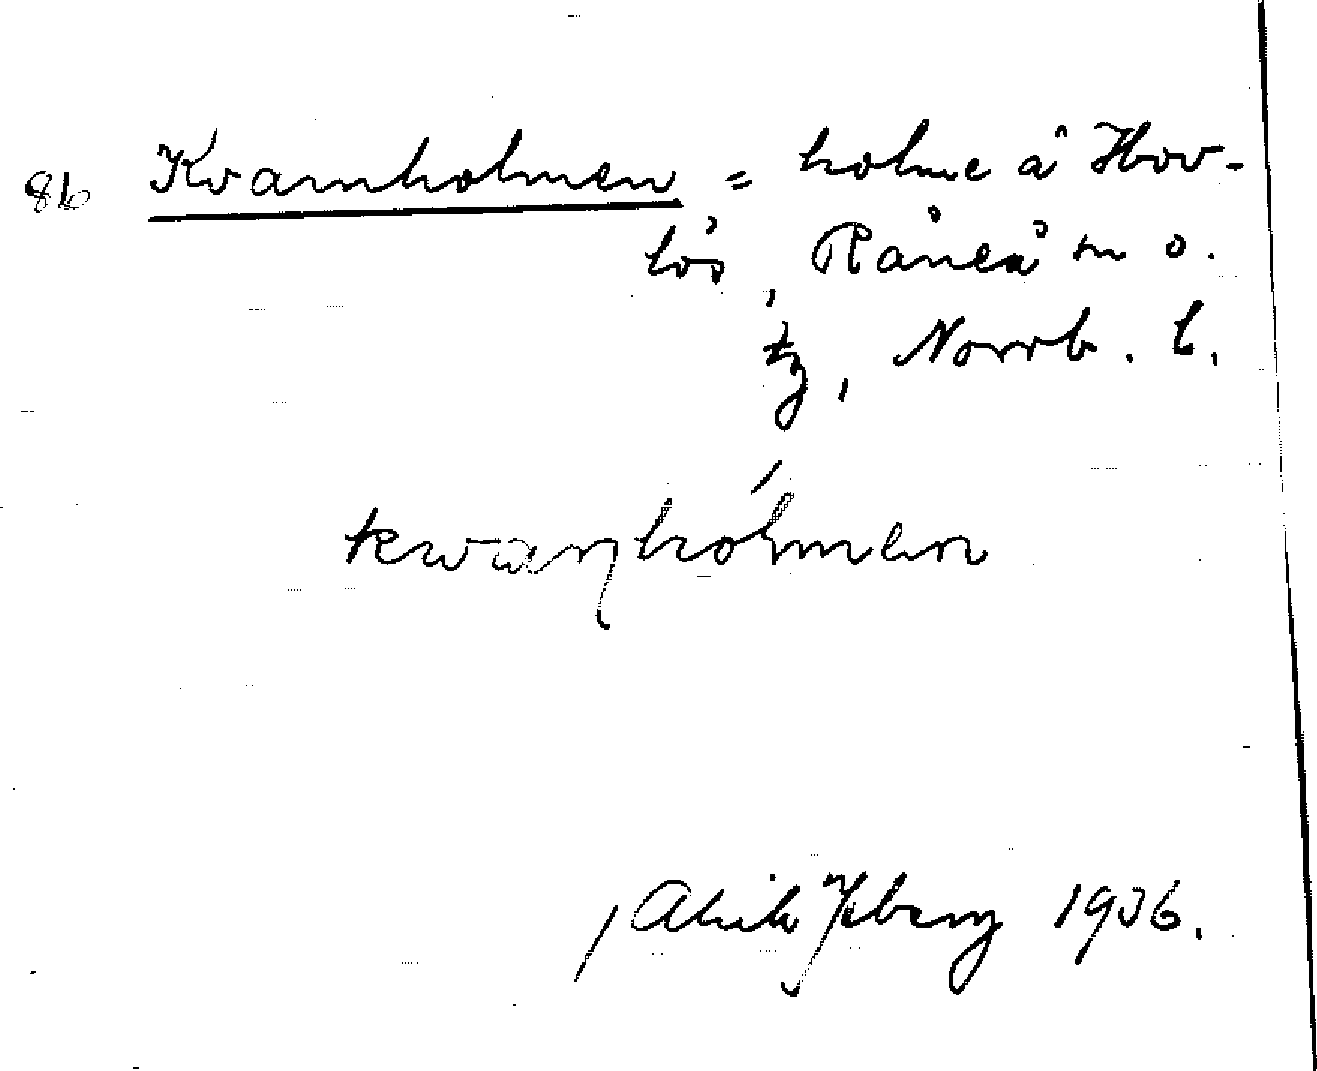 86 Kvarnholmen = holme å Hov-
lös, Råneå sn o.
tg, Norrb. l.
kwaɳhólmen
/ Isberg 1936.